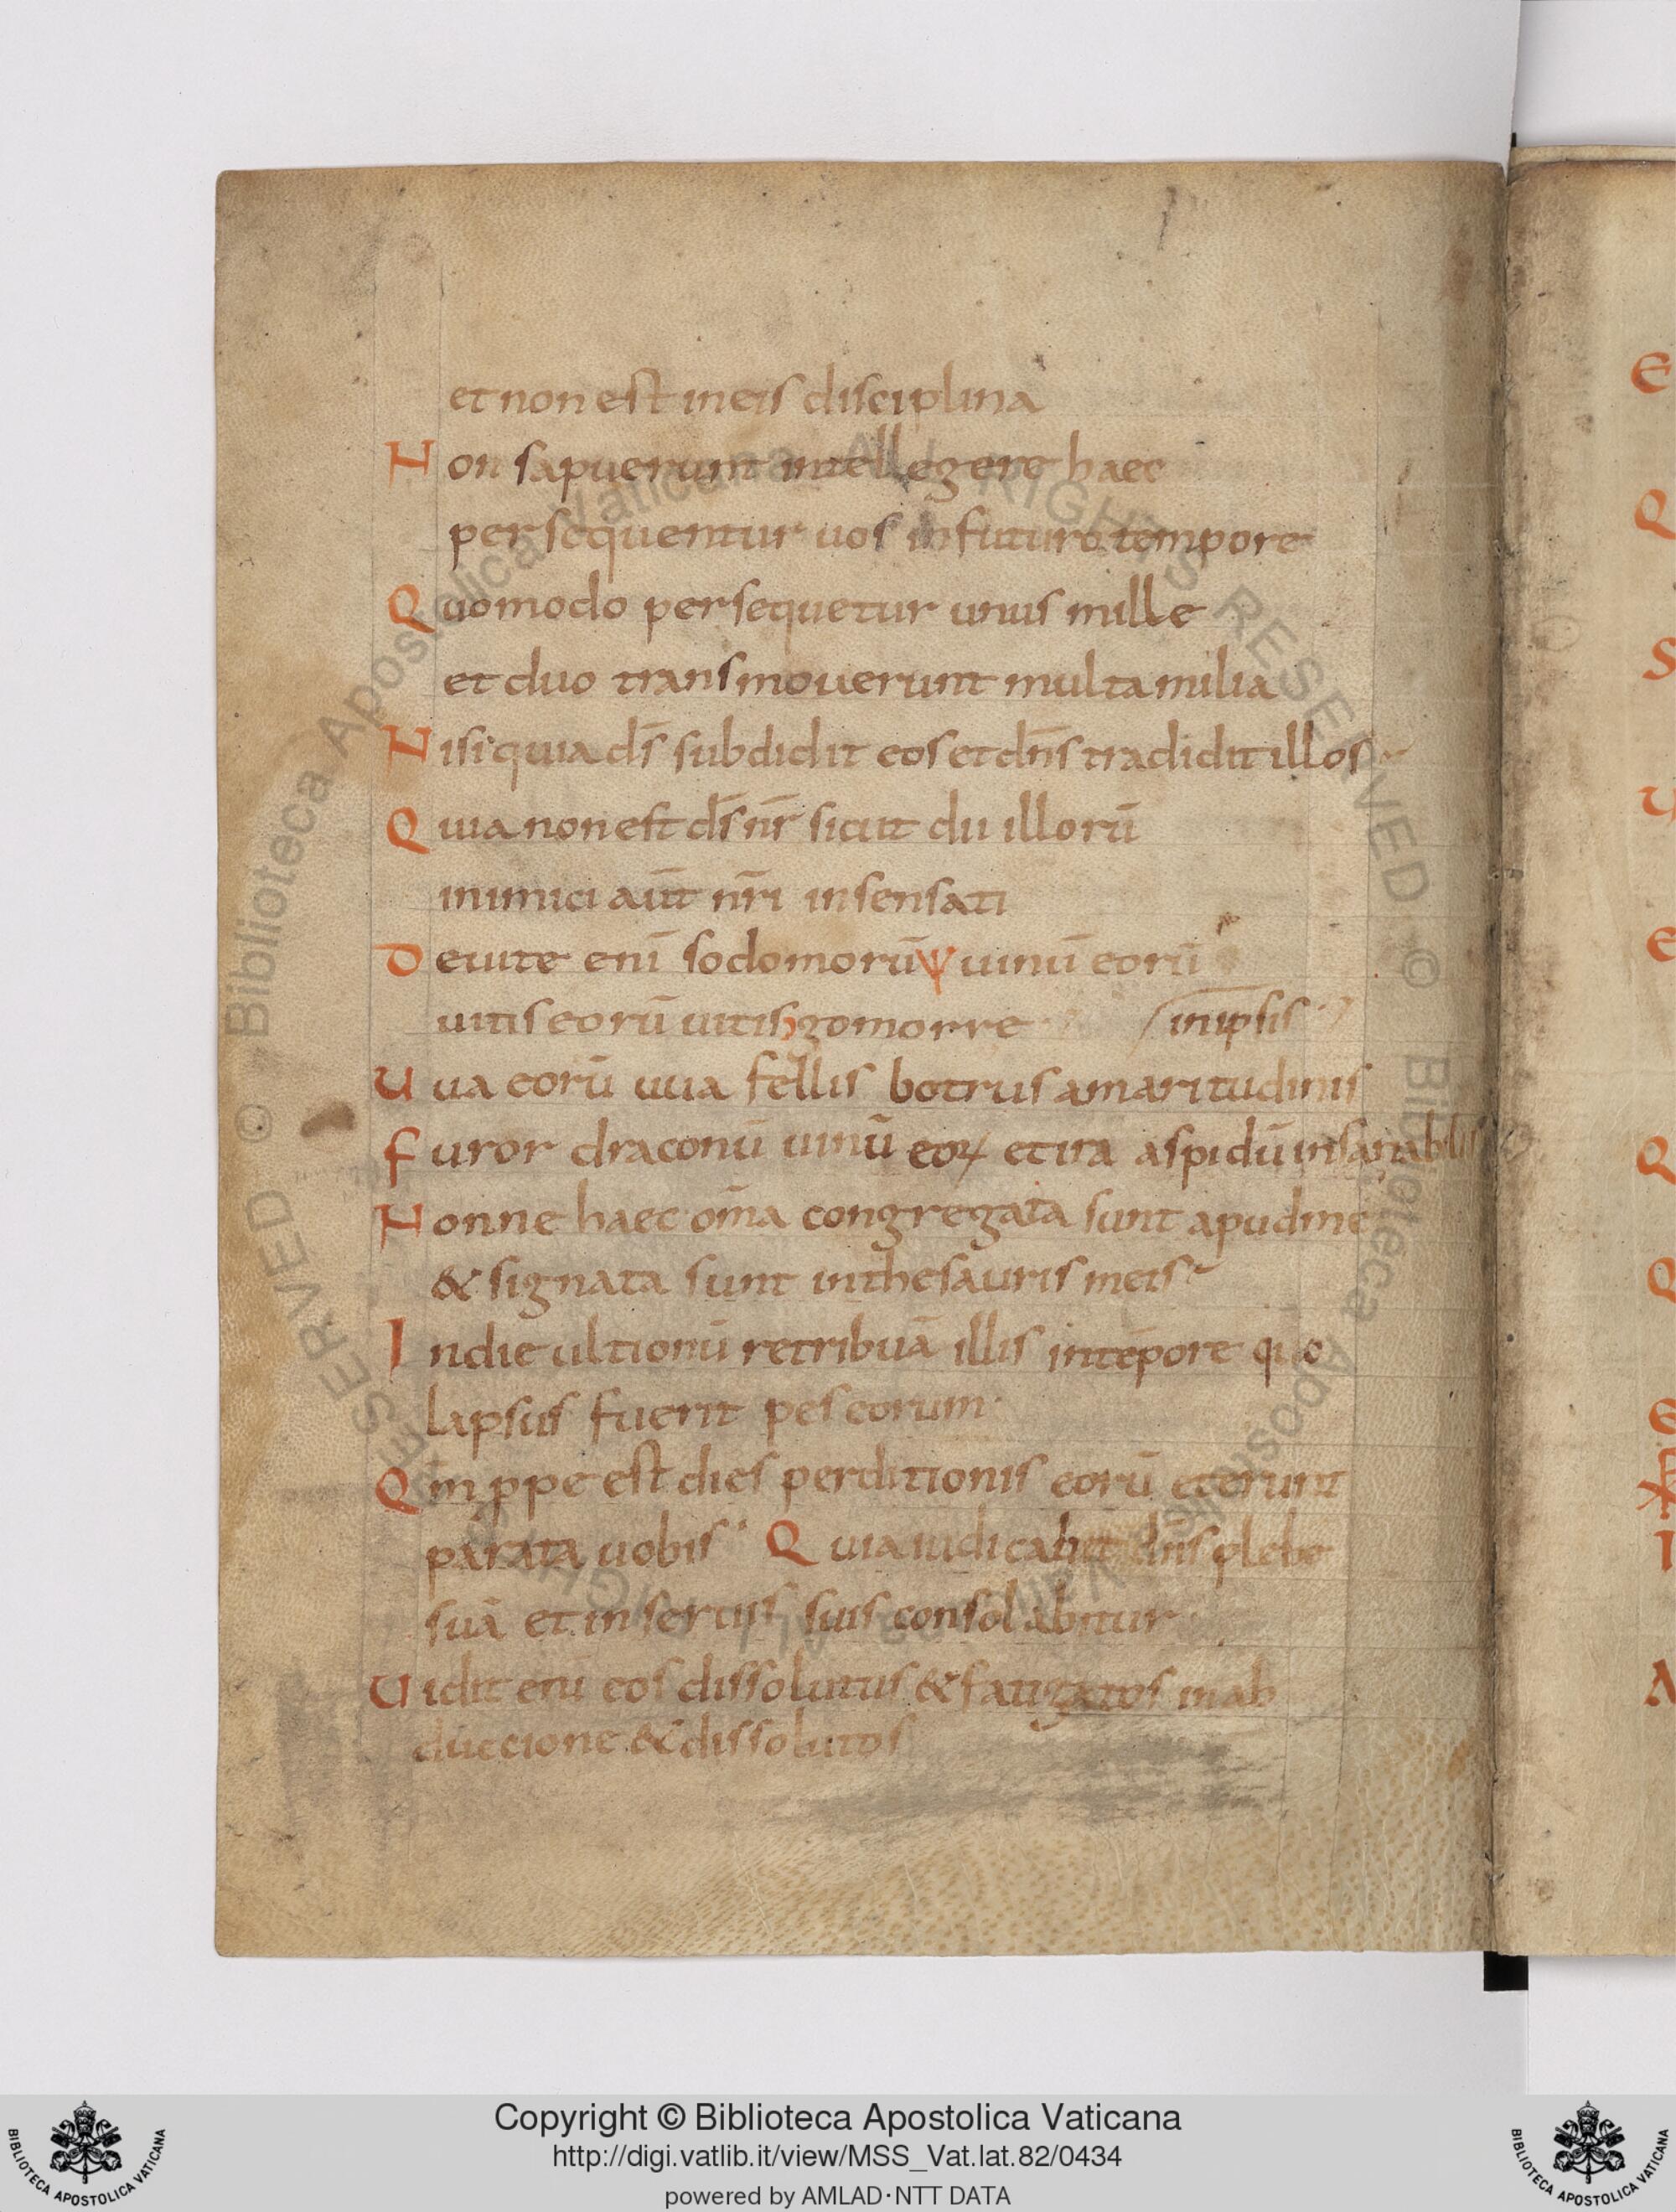 et non est in eis disciplina
Non sapuerunt intellegere haec
persequentur uos in futuro tempore
Quomodo persequetur unus mille
et duo transmouerunt multa milia
Nisi quia ds̄ subdidit eos et dn̄s tradidit illos
Quia non est ds̄ nr̄ sicut dii illorū
inimici aūt nr̄i insensati
De uite enī sodomorū uinū eorū
uitis eorū uitis gomorre in ipsis
Uua eorū uua fellis botrus amaritudinis
Furor draconū uinū eoꝝ et ira aspidū insanabilis
Nonne haec om̄a congregata sunt apud me
& signata sunt in thesauris meis
In die ultionū retribuā illis in tēpore quo
lapsus fuerit pes eorum
Qm̄ ꝓpe est dies perditionis eorū et erunt
parata uobis Quia iudicabit dn̄s plebē
suā et in seruis suis consolabitur
Uidit enī eos dissolutus & fatigatos in ab
duccione & dissolutos
E
Q
S
U
E
Q
Q
E
I
A
© Biblioteca Apostolica Vaticana ALL RIGHTS RESERVED © Biblioteca Apostolica Vaticana ALL RIGHTS RESERVED
Copyright © Biblioteca Apostolica Vaticana
http://digi.vatlib.it/view/MSS_Vat.lat.82/0434
powered by AMLAD·NTT DATA
BIBLIOTECA APOSTOLICA VATICANA
BIBLIOTECA APOSTOLICA VATICANA